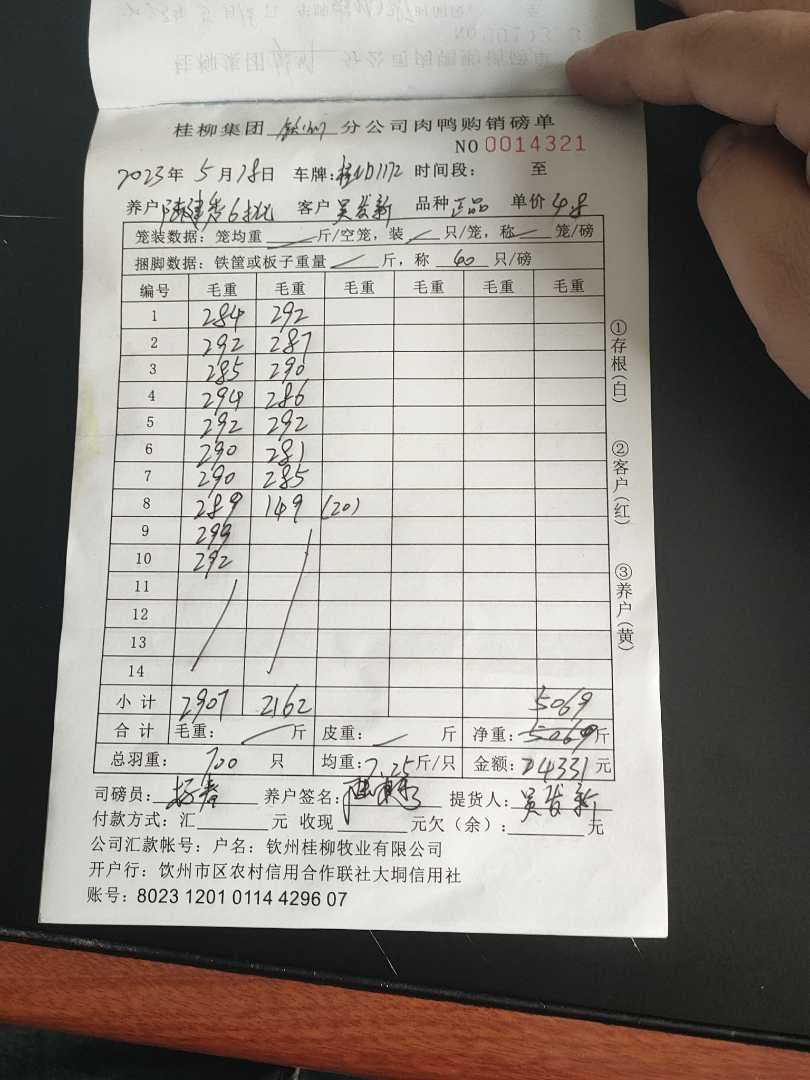 桂柳集团 钦州 分公司肉鸭购销磅单
NO 0014321
2023年 5月18日 车牌: 时间段: 至
养户 6批 客户 吴发新 品种 正品 单价 4.8
笼装数据：笼均重 斤/空笼，装 只/笼，称 笼/磅
捆脚数据：铁筐或板子重量 斤，称 40 只/磅
编号 毛重 毛重 毛重 毛重 毛重 毛重
1 284 292
2 292 287
3 285 290
4 294 286
5 292 292
6 290 281
7 290 285
8 289 149 (20)
9 299
10 292
11
12
13
14
小计 2907 2162 5069
合计 毛重： 斤 皮重： 斤 净重：5069斤
总羽重： 700 只 均重：7.25斤/只 金额：24331元
司磅员： 养户签名： 提货人：吴发新
付款方式：汇 元 收现 元欠（余）： 元
公司汇款帐号：户名：钦州桂柳牧业有限公司
开户行：饮州市区农村信用合作联社大垌信用社
账号：8023 1201 0114 4296 07
①存根(白)
②客户(红)
③养户(黄)